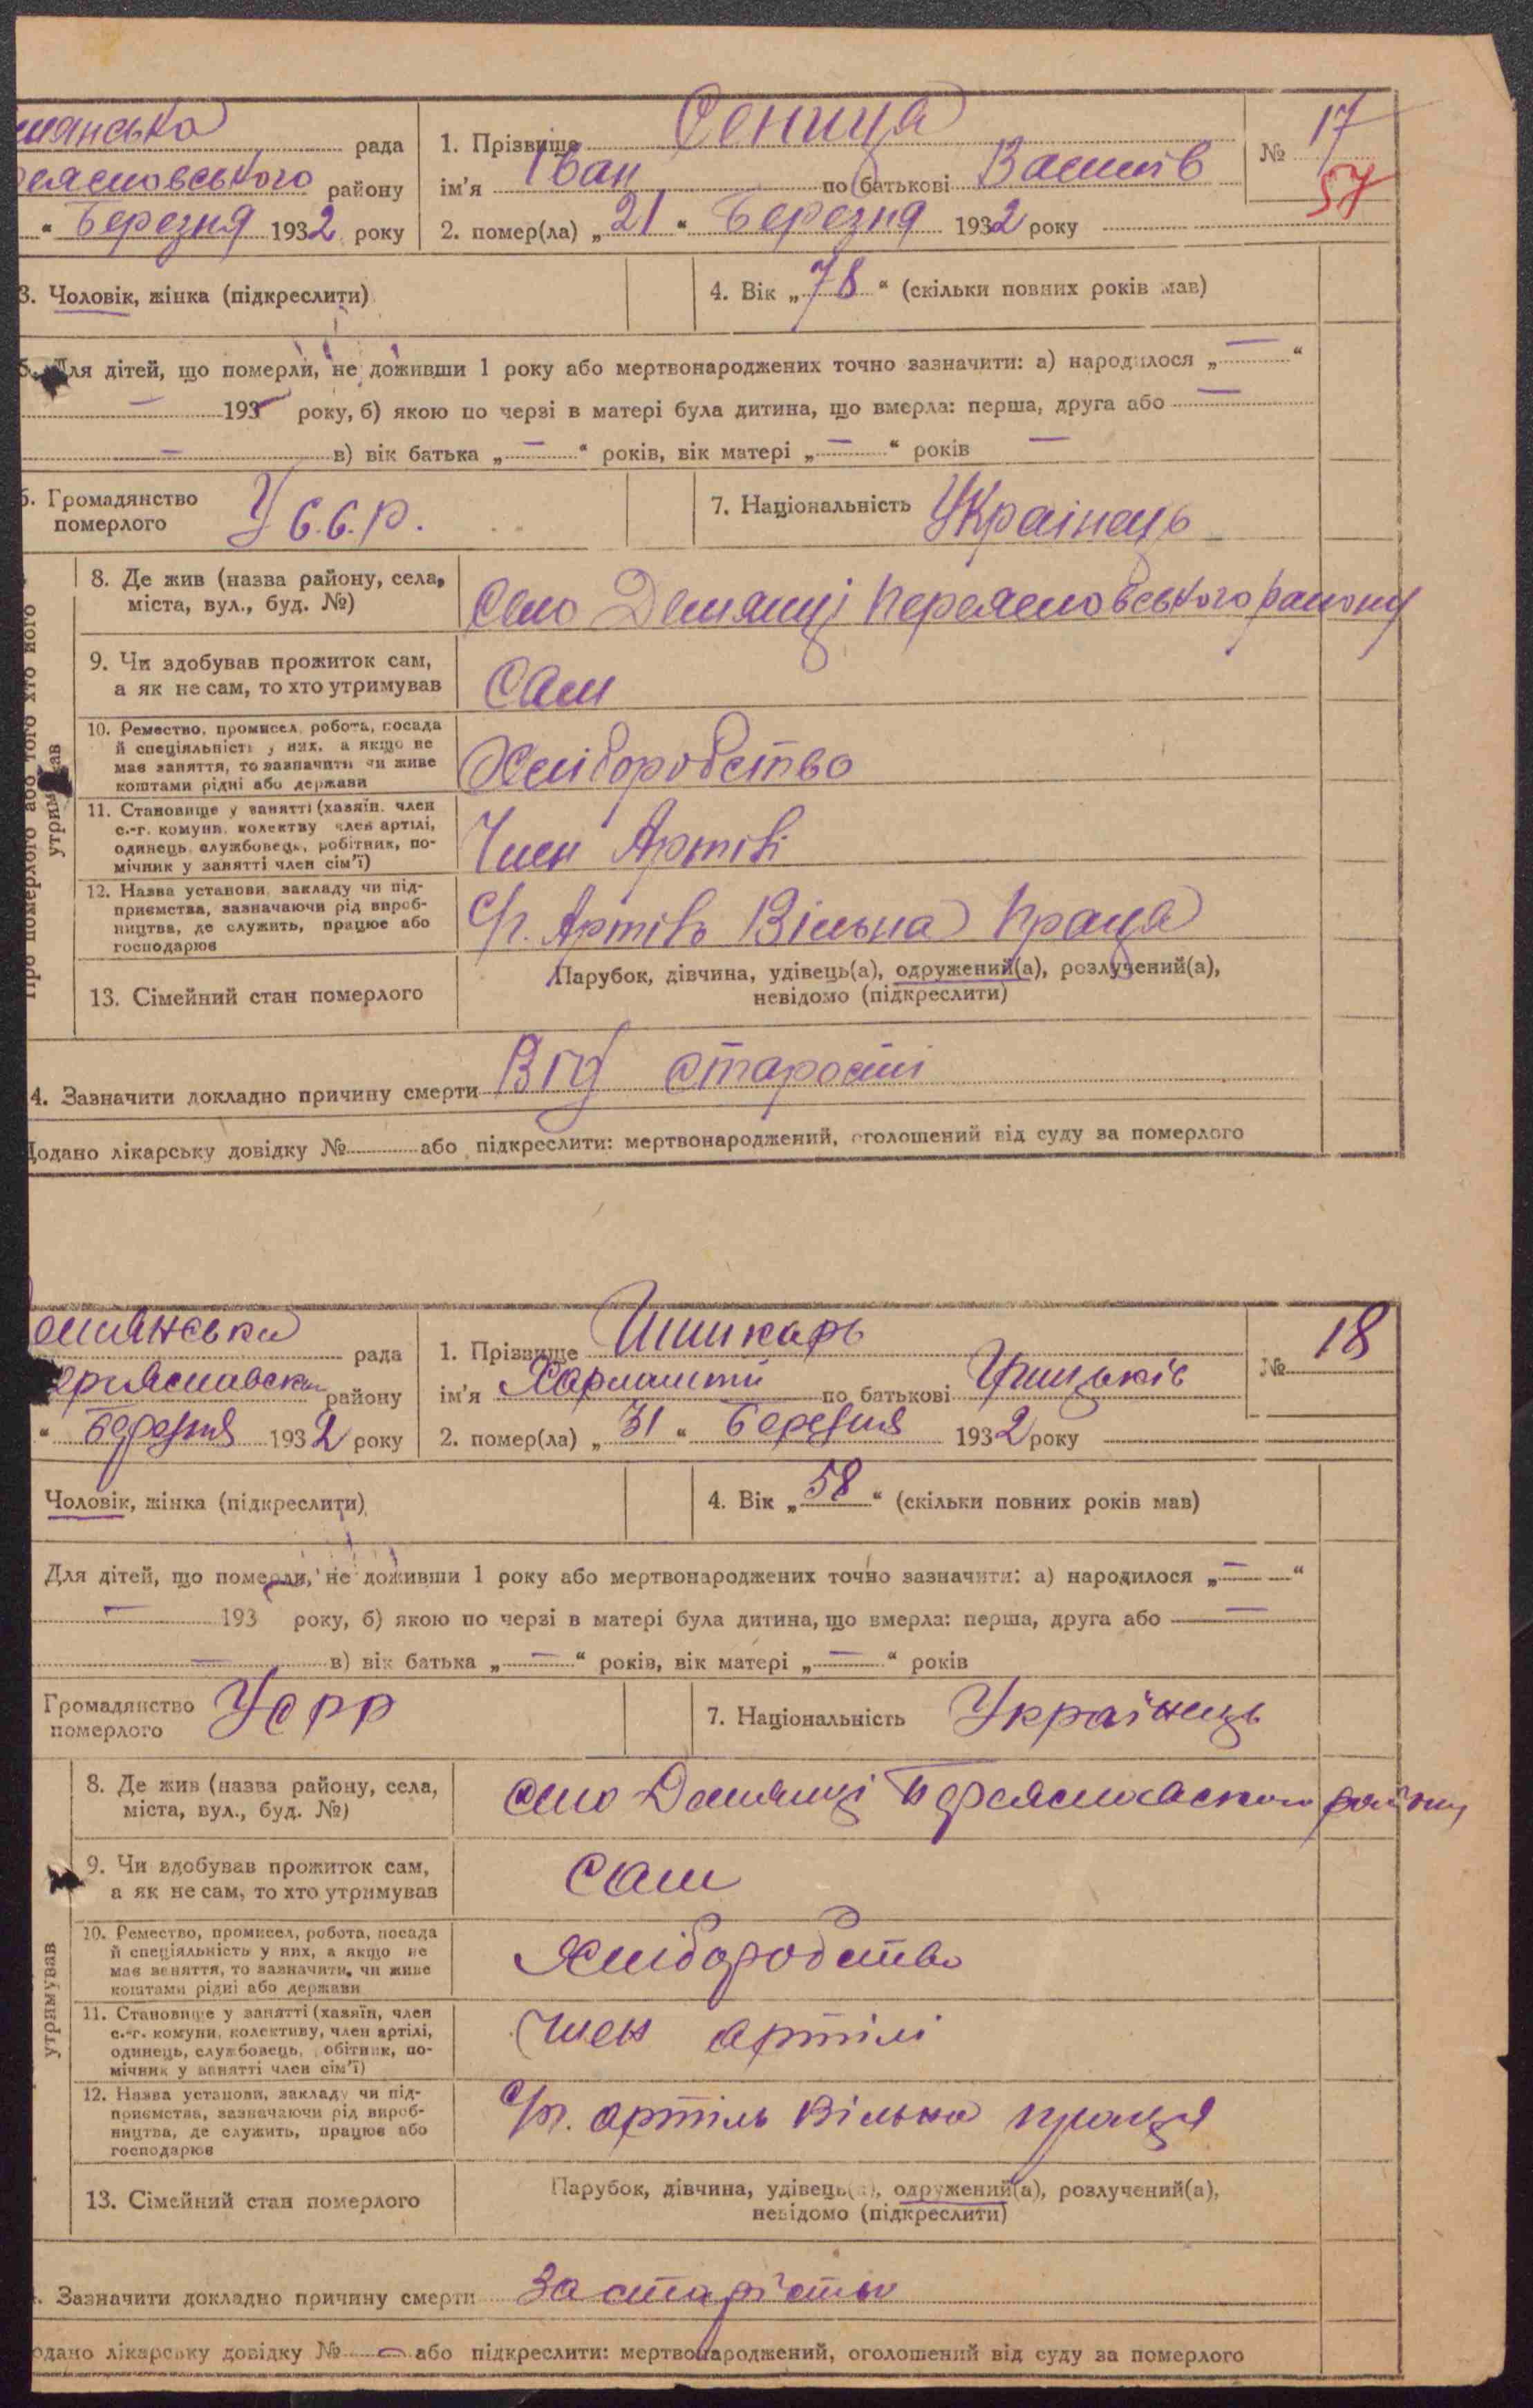 рада 1. Прізвище Сениця № 17
району ім'я Іван по батькові Василів 57
" Березня 1932 року 2. помер(ла) „ 21 " Березня 1932 року
3. Чоловік, жінка (підкреслити) 4. Вік „ 78 " (скільки повних років мав)
5. Для дітей, що померли, не доживши 1 року або мертвонароджених точно зазначити: а) народилося „ — "
— 193 року, б) якою по черзі в матері була дитина, що вмерла: перша, друга або —
— в) вік батька „ — " років, вік матері „ — " років —
6. Громадянство померлого У.С.С.Р. 7. Національність Українець
Про померлого або того хто його утримував
8. Де жив (назва району, села,
міста, вул., буд. №) Село Демянці Переясловського району
9. Чи здобував прожиток сам,
а як не сам, то хто утримував Сам
10. Ремество, промисел, робота, посада
й спеціяльність у них, а якщо не
має заняття, то зазначити чи живе
коштами рідні або держави Хліборобство
11. Становище у занятті (хазяїн, член
с.-г. комуни, колективу член артілі,
одинець, службовець, робітник, по-
мічник у занятті член сім'ї) Член Артілі
12. Назва установи, закладу чи під-
приємства, зазначаючи рід вироб-
ництва, де служить, працює або
господарює С/г. Артіль Вільна Праця
13. Сімейний стан померлого Парубок, дівчина, удівець(а), одружений(а), розлучений(а),
невідомо (підкреслити)
4. Зазначити докладно причину смерти Від старості
Додано лікарську довідку № або підкреслити: мертвонароджений, оголошений від суду за померлого
рада 1. Прізвище № 18
району ім'я по батькові Грицьків
" Березня 1932 року 2. помер(ла) „ 31 " Березня 1932 року
Чоловік, жінка (підкреслити) 4. Вік „ 58 " (скільки повних років мав)
Для дітей, що померли, не доживши 1 року або мертвонароджених точно зазначити: а) народилося „ — "
— 193 року, б) якою по черзі в матері була дитина, що вмерла: перша, друга або —
— в) вік батька „ — " років, вік матері „ — " років
Громадянство померлого УСРР 7. Національність Українець
утримував
8. Де жив (назва району, села,
міста, вул., буд. №) село Демянці району
9. Чи здобував прожиток сам,
а як не сам, то хто утримував Сам
10. Ремество, промисел, робота, посада
й спеціяльність у них, а якщо не
має заняття, то зазначити, чи живе
коштами рідні або держави Хліборобство
11. Становище у занятті (хазяїн, член
с.-г. комуни, колективу, член артілі,
одинець, службовець, робітник, по-
мічник у занятті член сім'ї) Член артілі
12. Назва установи, закладу чи під-
приємства, зазначаючи рід вироб-
ництва, де служить, працює або
господарює С/г. артіль Вільна праця
13. Сімейний стан померлого Парубок, дівчина, удівець(а), одружений(а), розлучений(а),
невідомо (підкреслити)
Зазначити докладно причину смерти За старістю
одано лікарську довідку № — або підкреслити: мертвонароджений, оголошений від суду за померлого